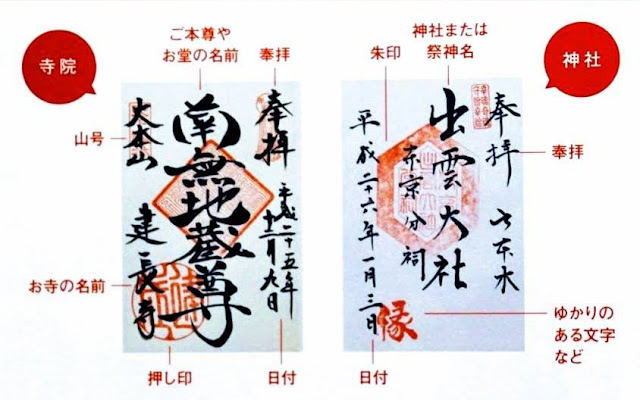 寺院
ご本尊や
お堂の名前
奉拝
山号
お寺の名前
押し印
日付
奉拝
平成二十五年
十二月九日
南無地蔵尊
大本山
建長寺
神社
神社または
祭神名
朱印
奉拝
ゆかりの
ある文字
など
日付
奉拝
六本木
出雲大社
東京分祠
平成二十六年一月三日
縁